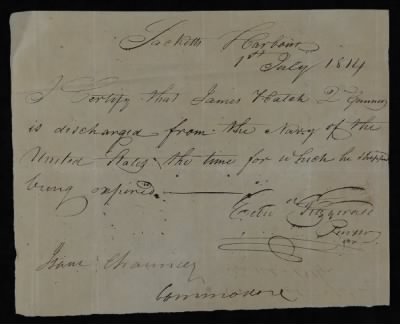 Sacketts Harbour
1st July 1814
I Certify that James Hatch 2d Gunner
is discharged from the Navy of the
United States the time for which he shipped
being expired
Fitzgerald
Purser
Isaac Chauncey
Commodore